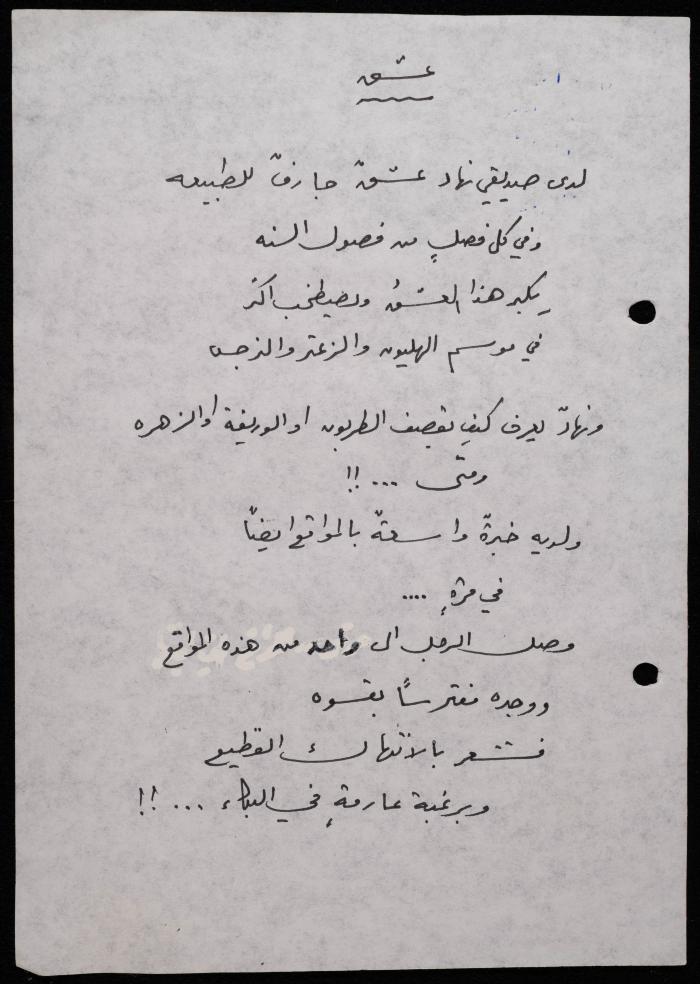 عشق
لدى صديقي نهاد عشقٌ جارفٌ للطبيعه
وفي كل فصلٍ من فصول السنه
يكبر هذا العشقُ ويصطخب اكثر
في موسم الهليون والزعتر والنرجس
ونهادٌ يعرف كيف تقصف الطربون او الوريقة او الزهره
ومتى ... !!
ولديه خبرةٌ واسعةٌ بالمواقع ايضاً
في مرةٍ ....
وصل الرجل الى واحد من هذه المواقع
ووجده مفترساً بقسوه
فشعر بالانتهاك الفظيع
وبرغبة عارمةٍ في البكاء ... !!